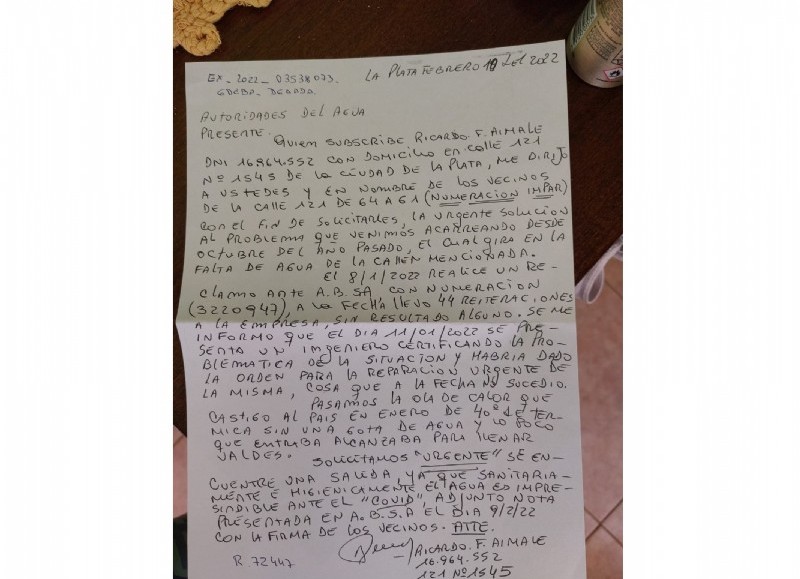 EX-2022-03538073-
GDEBA-DEGADA.
LA PLATA FEBRERO 10 DEL 2022
AUTORIDADES DEL AGUA
PRESENTE.
QUIEN SUBSCRIBE RICARDO. F. AIMALE
DNI 16.964.552 CON DOMICILIO EN CALLE 121
Nº 1545 DE LA CIUDAD DE LA PLATA, ME DIRIJO
A USTEDES Y EN NOMBRE DE LOS VECINOS
DE LA CALLE 121 DE 64 A 61 (NUMERACION IMPAR)
CON EL FIN DE SOLICITARLES, LA URGENTE SOLUCION
AL PROBLEMA QUE VENIMOS ACARREANDO DESDE
OCTUBRE DEL AÑO PASADO, EL CUAL GIRA EN LA
FALTA DE AGUA DE LA CALLEN MENCIONADA.
EL 8/1/2022 REALICE UN RE-
CLAMO ANTE A.B.SA CON NUMERACION
(3220947), A LA FECHA LLEVO 44 REITERACIONES
A LA EMPRESA, SIN RESULTADO ALGUNO. SE ME
INFORMO QUE EL DIA 11/01/2022 SE PRE-
SENTA UN INGENIERO CERTIFICANDO LA PRO-
BLEMATICA DE LA SITUACION Y HABRIA DADO
LA ORDEN PARA LA REPARACION URGENTE DE
LA MISMA, COSA QUE A LA FECHA NO SUCEDIO.
PASAMOS LA OLA DE CALOR QUE
CASTIGO AL PAIS EN ENERO DE 40º DE TER-
MICA SIN UNA GOTA DE AGUA Y LO POCO
QUE ENTRABA ALCANZABA PARA LLENAR
VALDES.
SOLICITAMOS "URGENTE" SE EN-
CUENTRE UNA SALIDA, YA QUE SANITARIA-
MENTE E HIGIENICAMENTE EL AGUA ES IMPRE-
SINDIBLE ANTE EL "COVID", ADJUNTO NOTA
PRESENTADA EN A.B.S.A EL DIA 9/2/22
CON LA FIRMA DE LOS VECINOS. ATTE.
RICARDO. F. AIMALE
16.964.552
121 Nº 1545
R. 72447